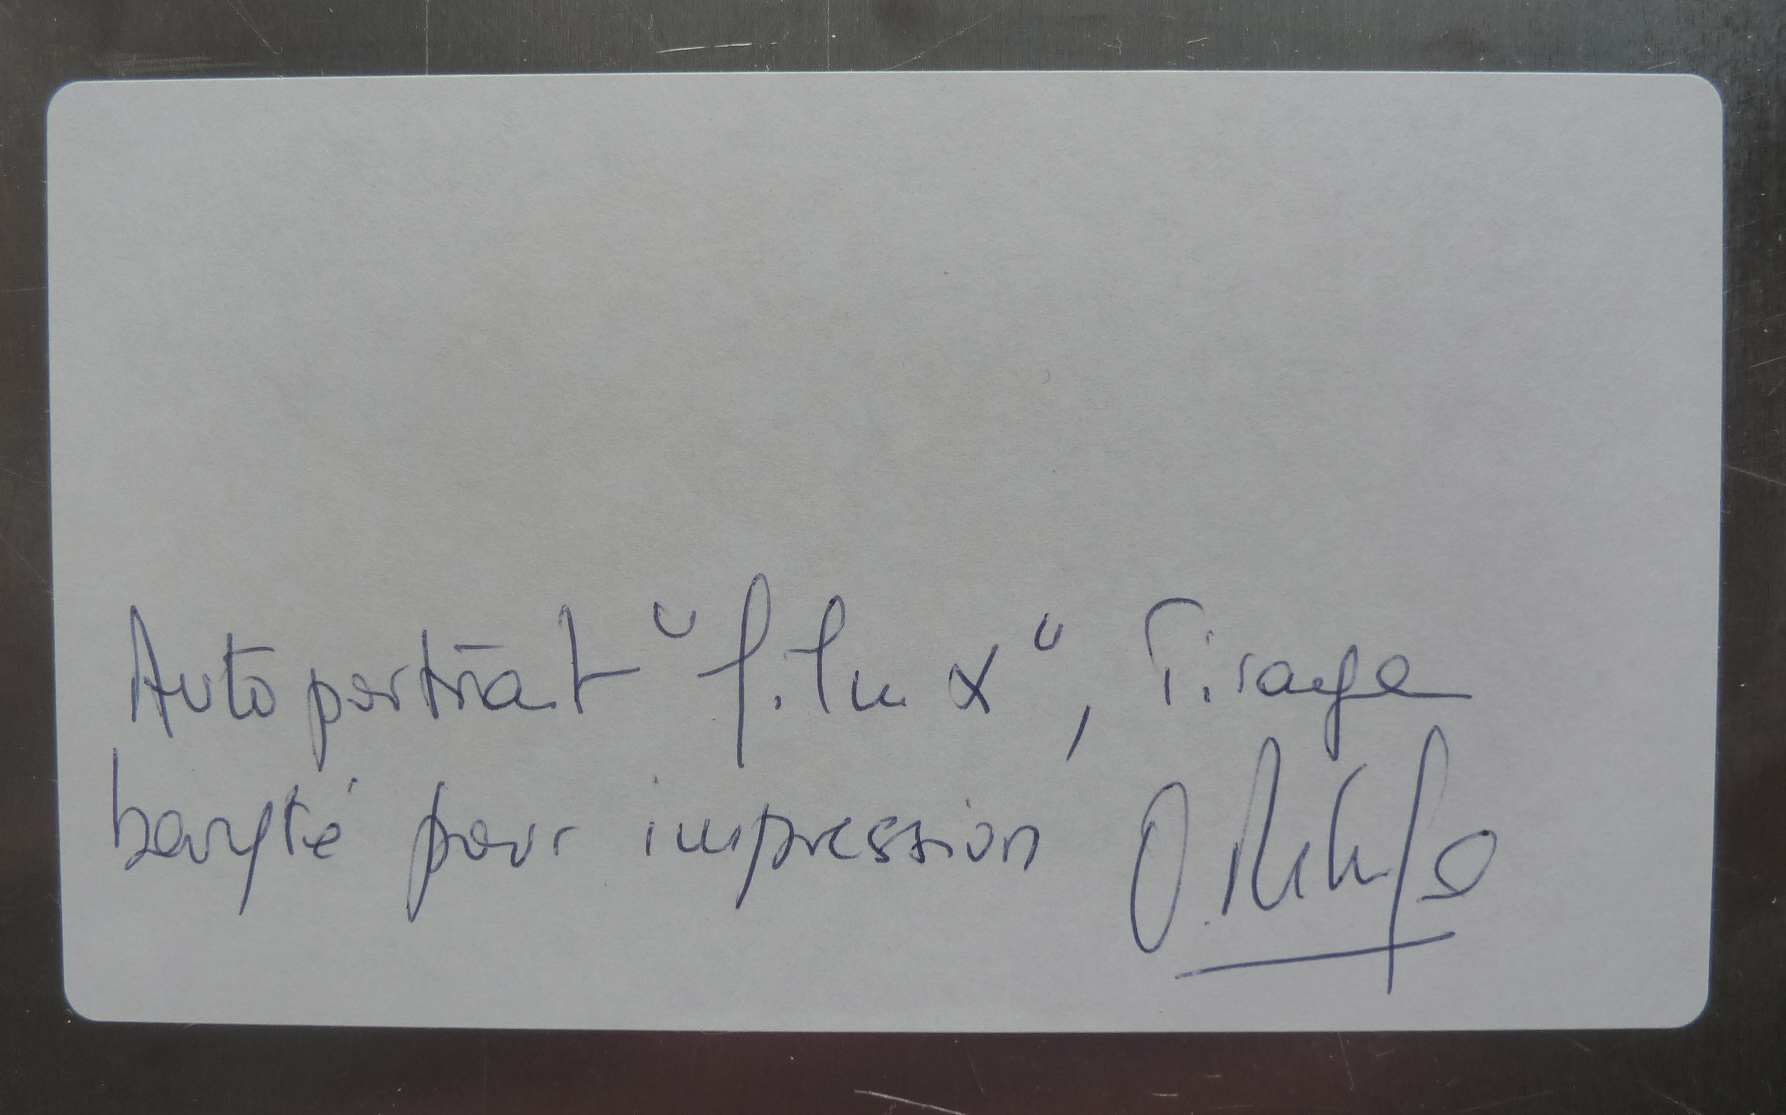 Autoportrait "film α", Tirage
baryté pour impression O.